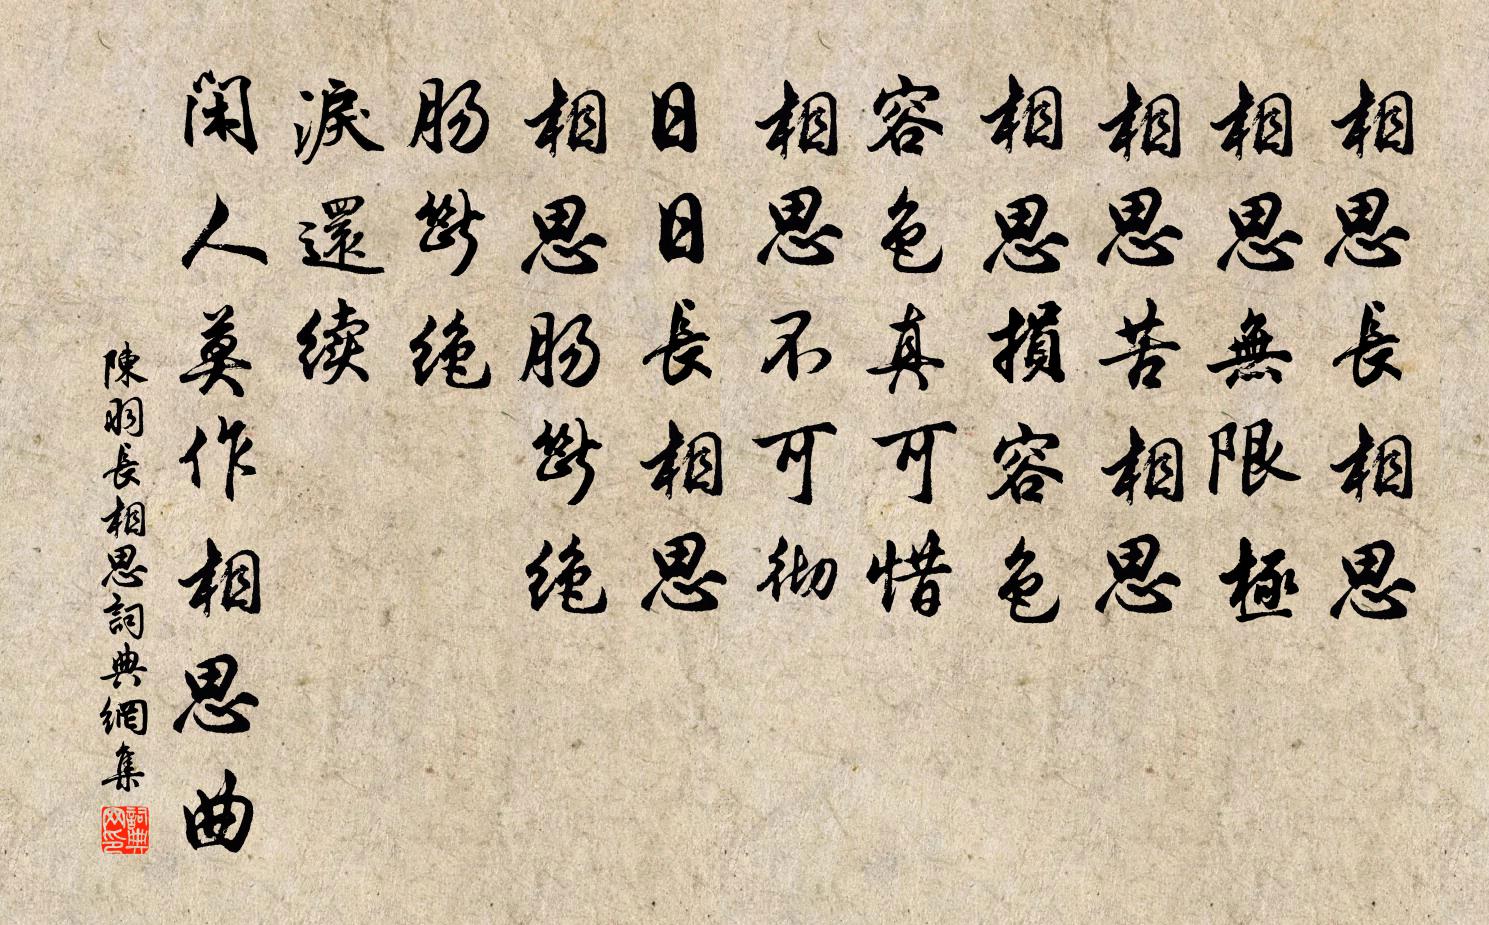 相思長相思
相思無限極
相思苦相思
相思損容色
容色真可惜
相思不可彻
日日長相思
相思肠斷絶
肠斷絶
淚還續
閑人莫作相思曲
陳羽長相思詞典網集
詞典网印